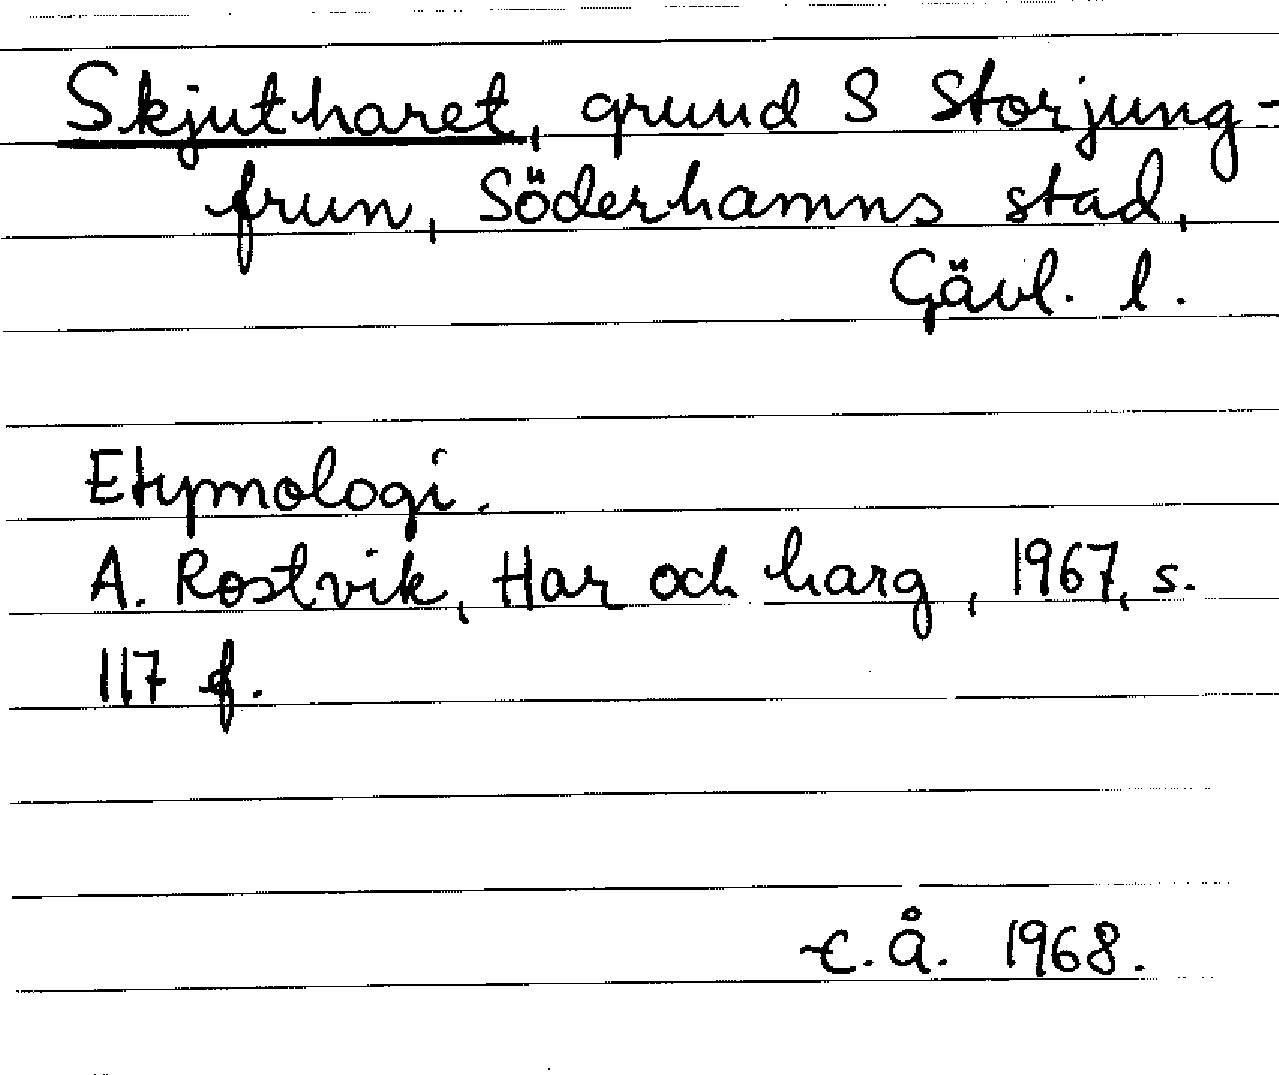 Skjutharet, grund S Storjung-
frun, Söderhamns stad,
Gävl. l.
Etymologi.
A. Rostvik, Har och harg, 1967, s.
117 f.
C.Å. 1968.